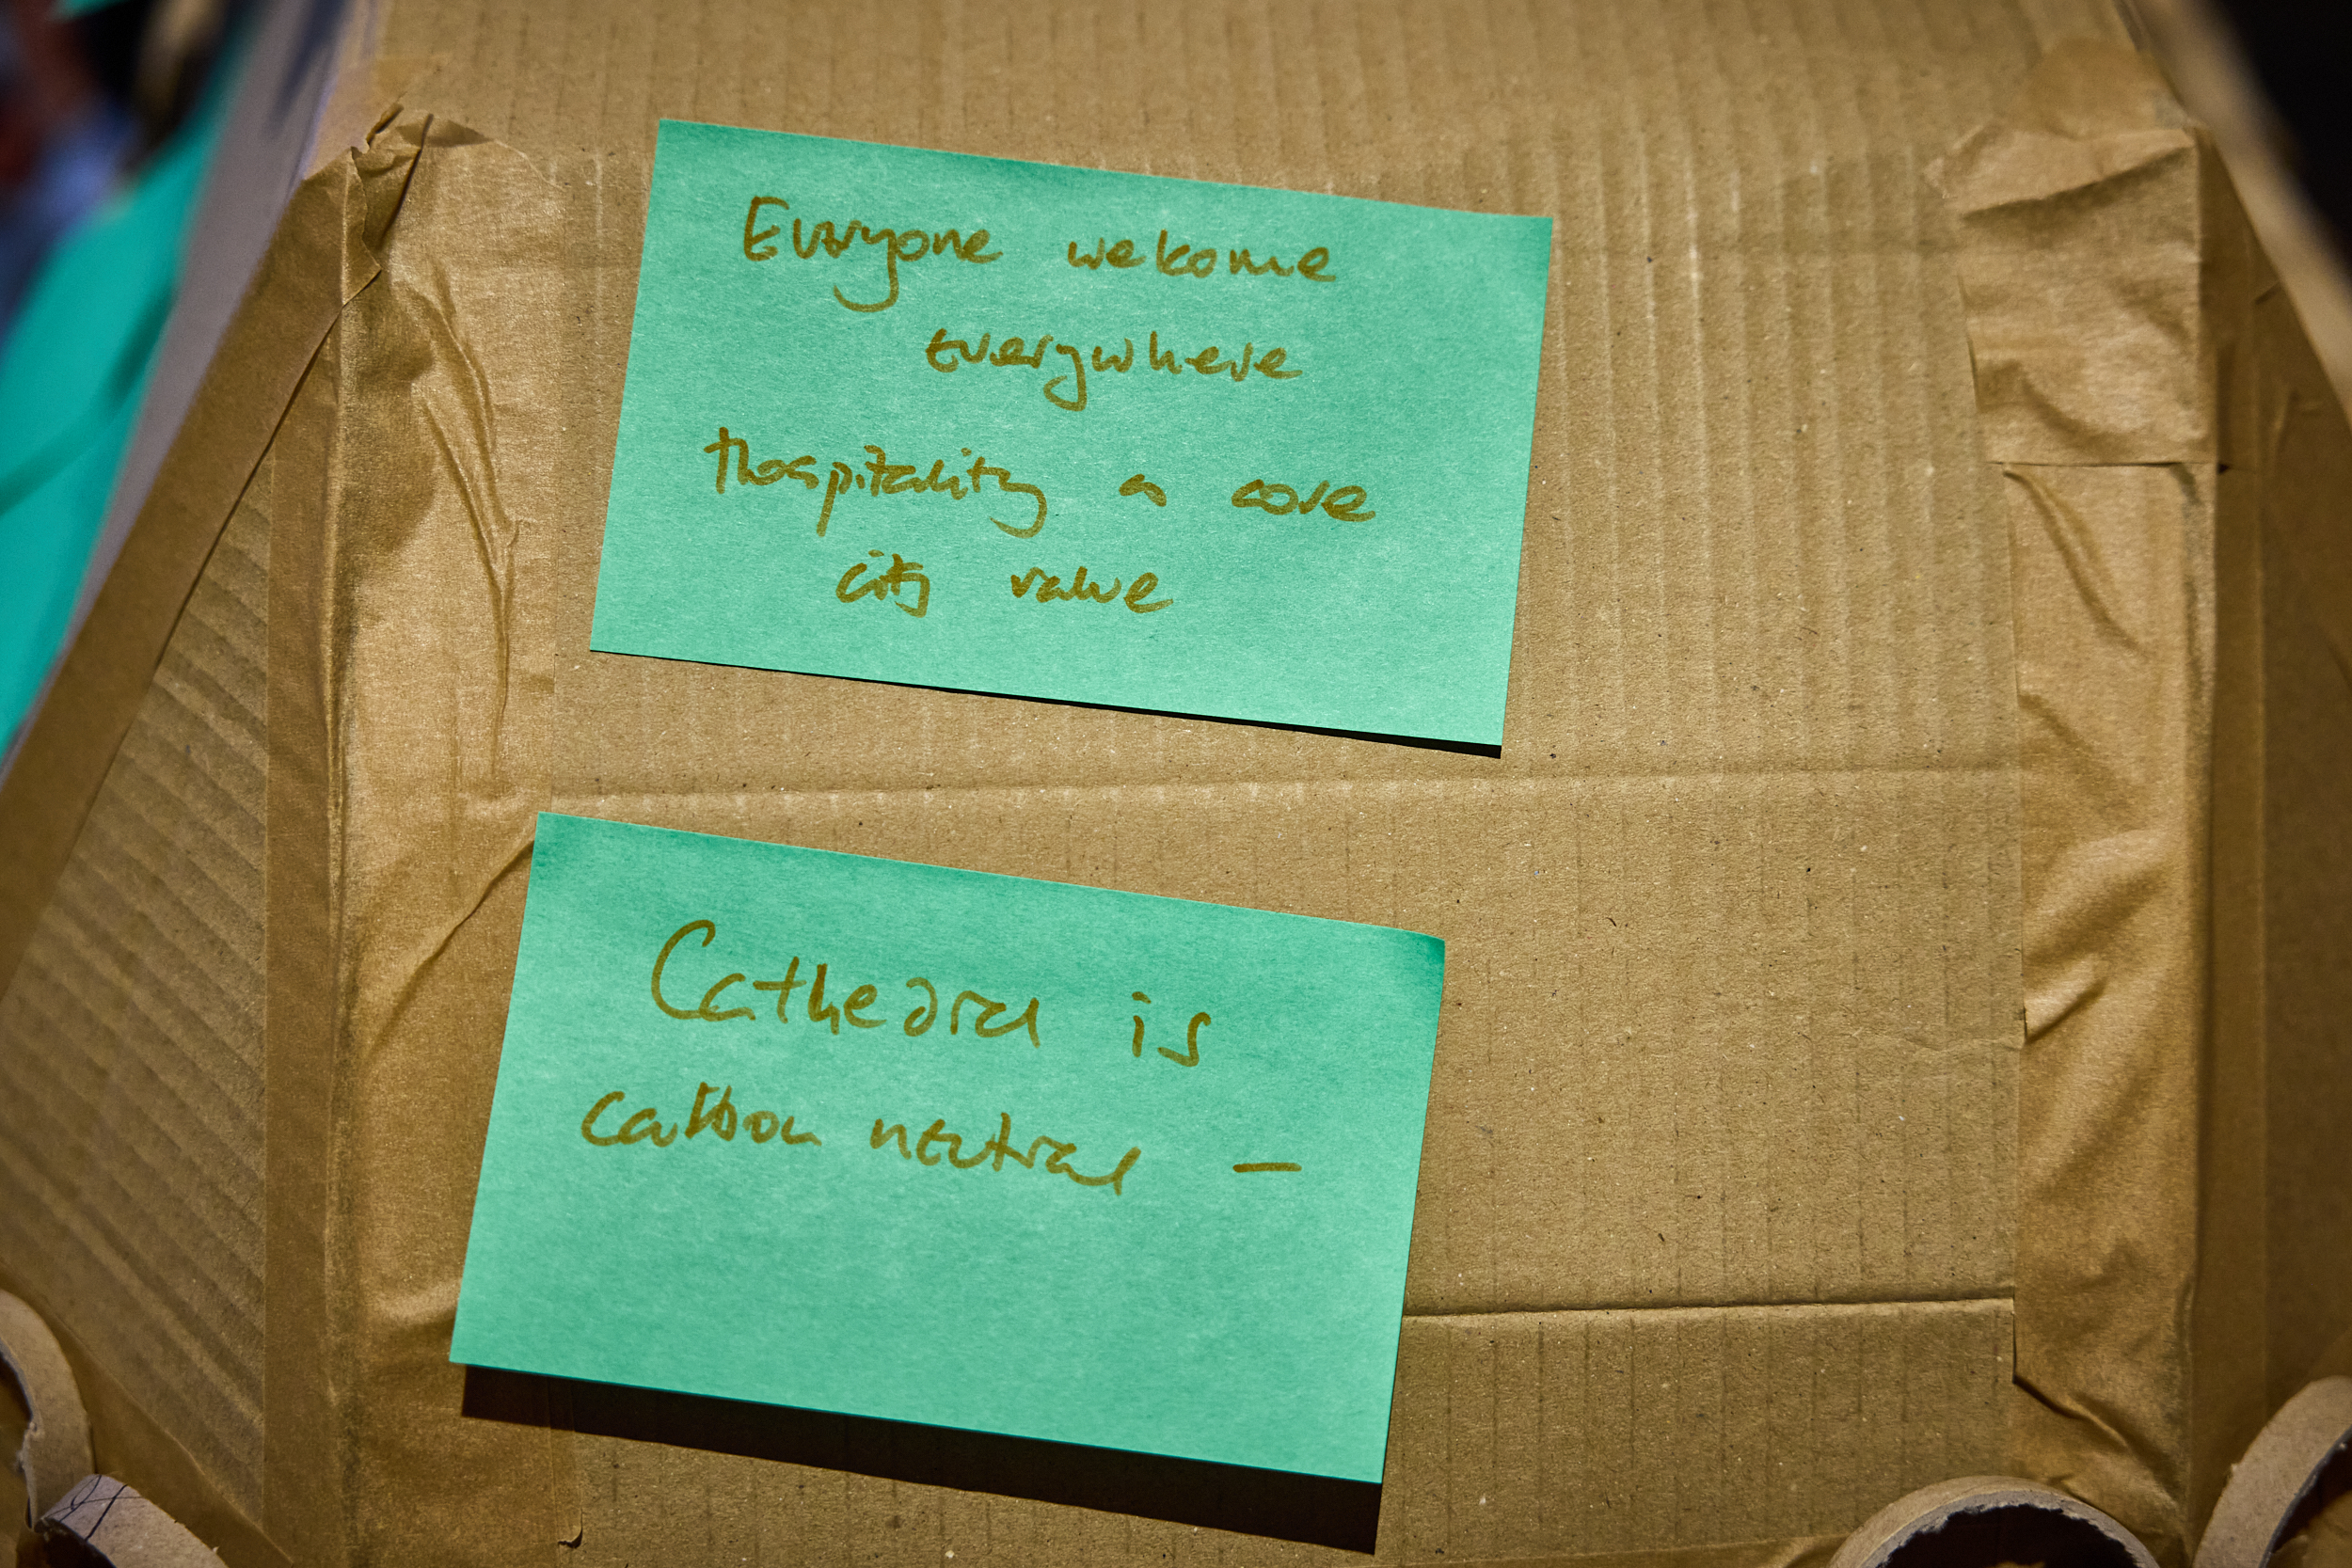 Everyone welcome
everywhere
Hospitality as core
city value
Cathedral is
carbon neutral –